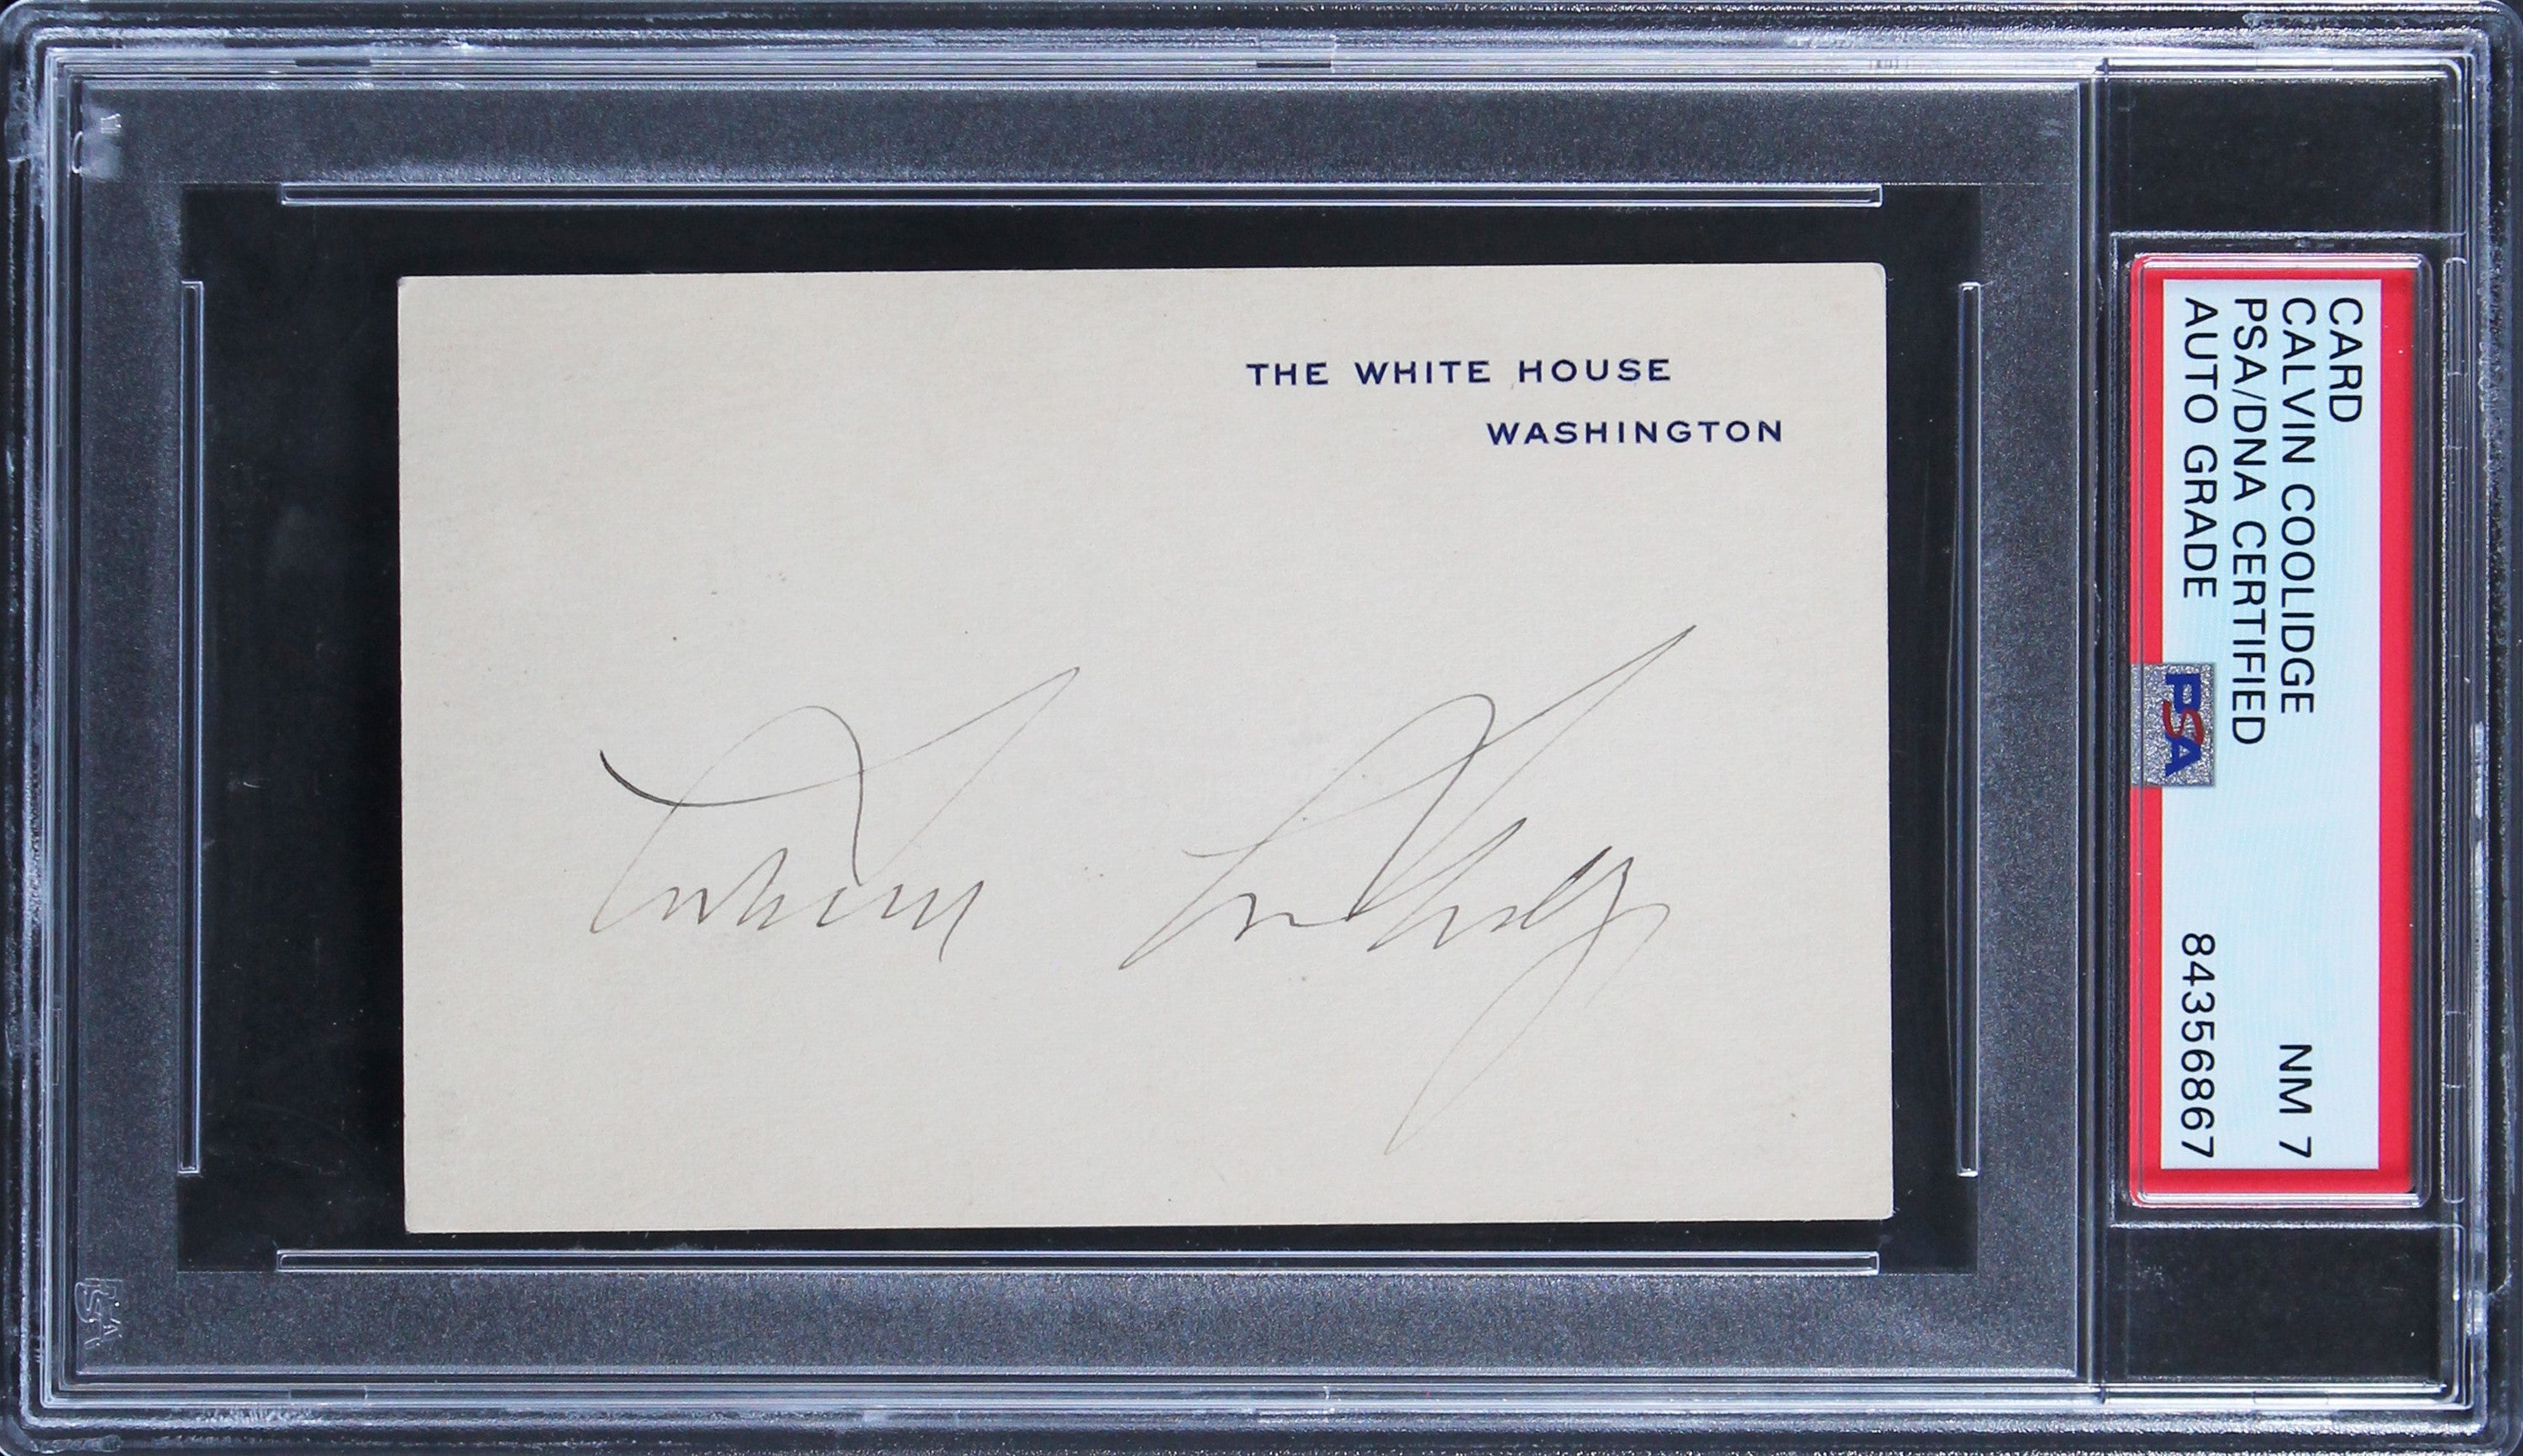 THE WHITE HOUSE
WASHINGTON
Calvin Coolidge
CARD
CALVIN COOLIDGE NM 7
PSA/DNA CERTIFIED
AUTO GRADE 84356867
PSA